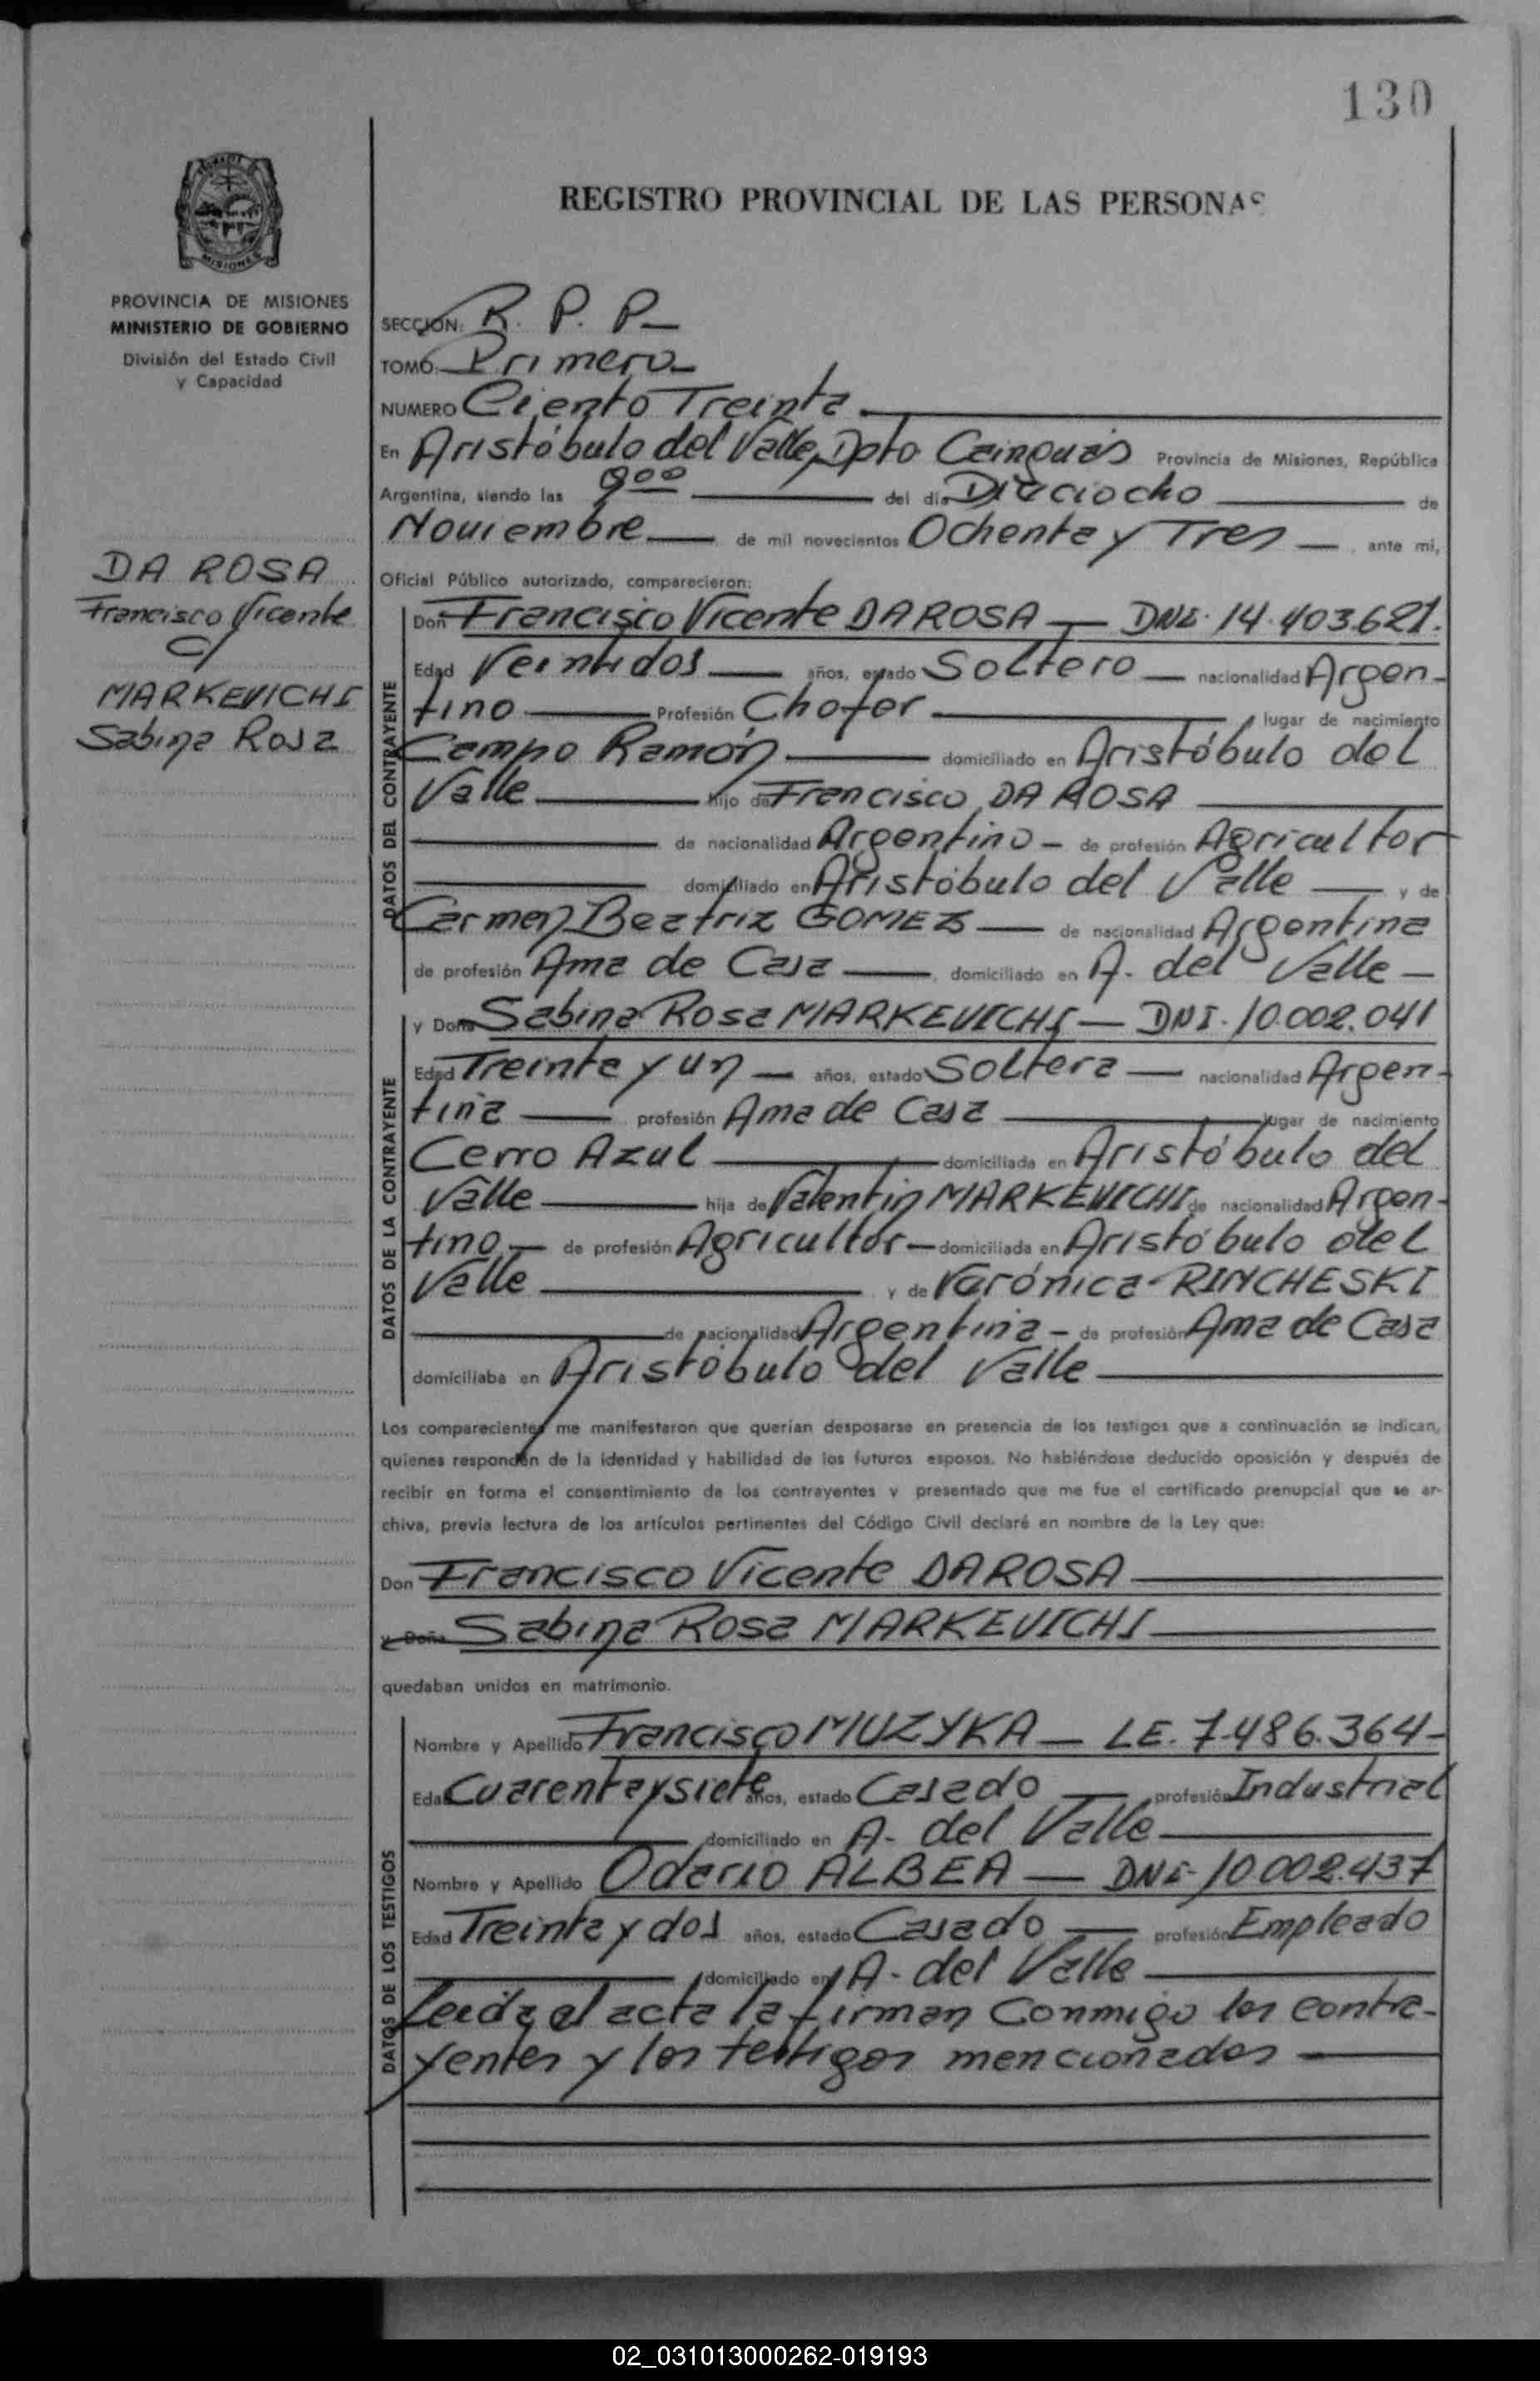 130
REGISTRO PROVINCIAL DE LAS PERSONAS
MISIONES
PROVINCIA DE MISIONES
MINISTERIO DE GOBIERNO
División del Estado Civil
y Capacidad
SECCION: R. P. P.
TOMO: Primero
NUMERO Ciento Treinta
En Aristóbulo del Valle, Dpto Cainguás Provincia de Misiones, República
Argentina, siendo las 9 00 del día Dieciocho de
Noviembre de mil novecientos Ochenta y Tres ante mi,
Oficial Público autorizado, comparecieron:
DA ROSA
Francisco Vicente
c/
MARKEVICHI
Sabina Rosa
DATOS DEL CONTRAYENTE
Don Francisco Vicente DA ROSA — DNI. 14.403.621.
Edad Veintidos años, estado Soltero nacionalidad Argen-
tino Profesión Chofer lugar de nacimiento
Campo Ramón domiciliado en Aristóbulo del
Valle hijo de Francisco DA ROSA
de nacionalidad Argentino - de profesión Agricultor
domiciliado en Aristóbulo del Valle y de
Carmen Beatriz GOMEZ de nacionalidad Argentina
de profesión Ama de Casa domiciliado en A. del Valle
DATOS DE LA CONTRAYENTE
y Doña Sabina Rosa MARKEVICHI — DNI. 10.002.041
Edad Treinta y un años, estado Soltera nacionalidad Argen-
tina profesión Ama de Casa lugar de nacimiento
Cerro Azul domiciliada en Aristóbulo del
Valle hija de Valentin MARKEVICHI de nacionalidad Argen-
tino de profesión Agricultor domiciliada en Aristóbulo del
Valle y de Varónica RINCHESKI
de nacionalidad Argentina - de profesión Ama de Casa
domiciliaba en Aristóbulo del Valle
Los comparecientes me manifestaron que querían desposarse en presencia de los testigos que a continuación se indican,
quienes responden de la identidad y habilidad de los futuros esposos. No habiéndose deducido oposición y después de
recibir en forma el consentimiento de los contrayentes y presentado que me fue el certificado prenupcial que se ar-
chiva, previa lectura de los artículos pertinentes del Código Civil declaré en nombre de la Ley que:
Don Francisco Vicente DA ROSA
y Doña Sabina Rosa MARKEVICHI
quedaban unidos en matrimonio.
DATOS DE LOS TESTIGOS
Nombre y Apellido Francisco MUZYKA — LE. 7.486.364-
Edad Cuarenta y siete años, estado Casado profesión Industrial
domiciliado en A. del Valle
Nombre y Apellido Odario ALBEA — DNI. 10.002.437
Edad Treinta y dos años, estado Casado profesión Empleado
domiciliado en A. del Valle
Leida el acta la firman Conmigo los contra-
yentes y los testigos mencionados
02_031013000262-019193